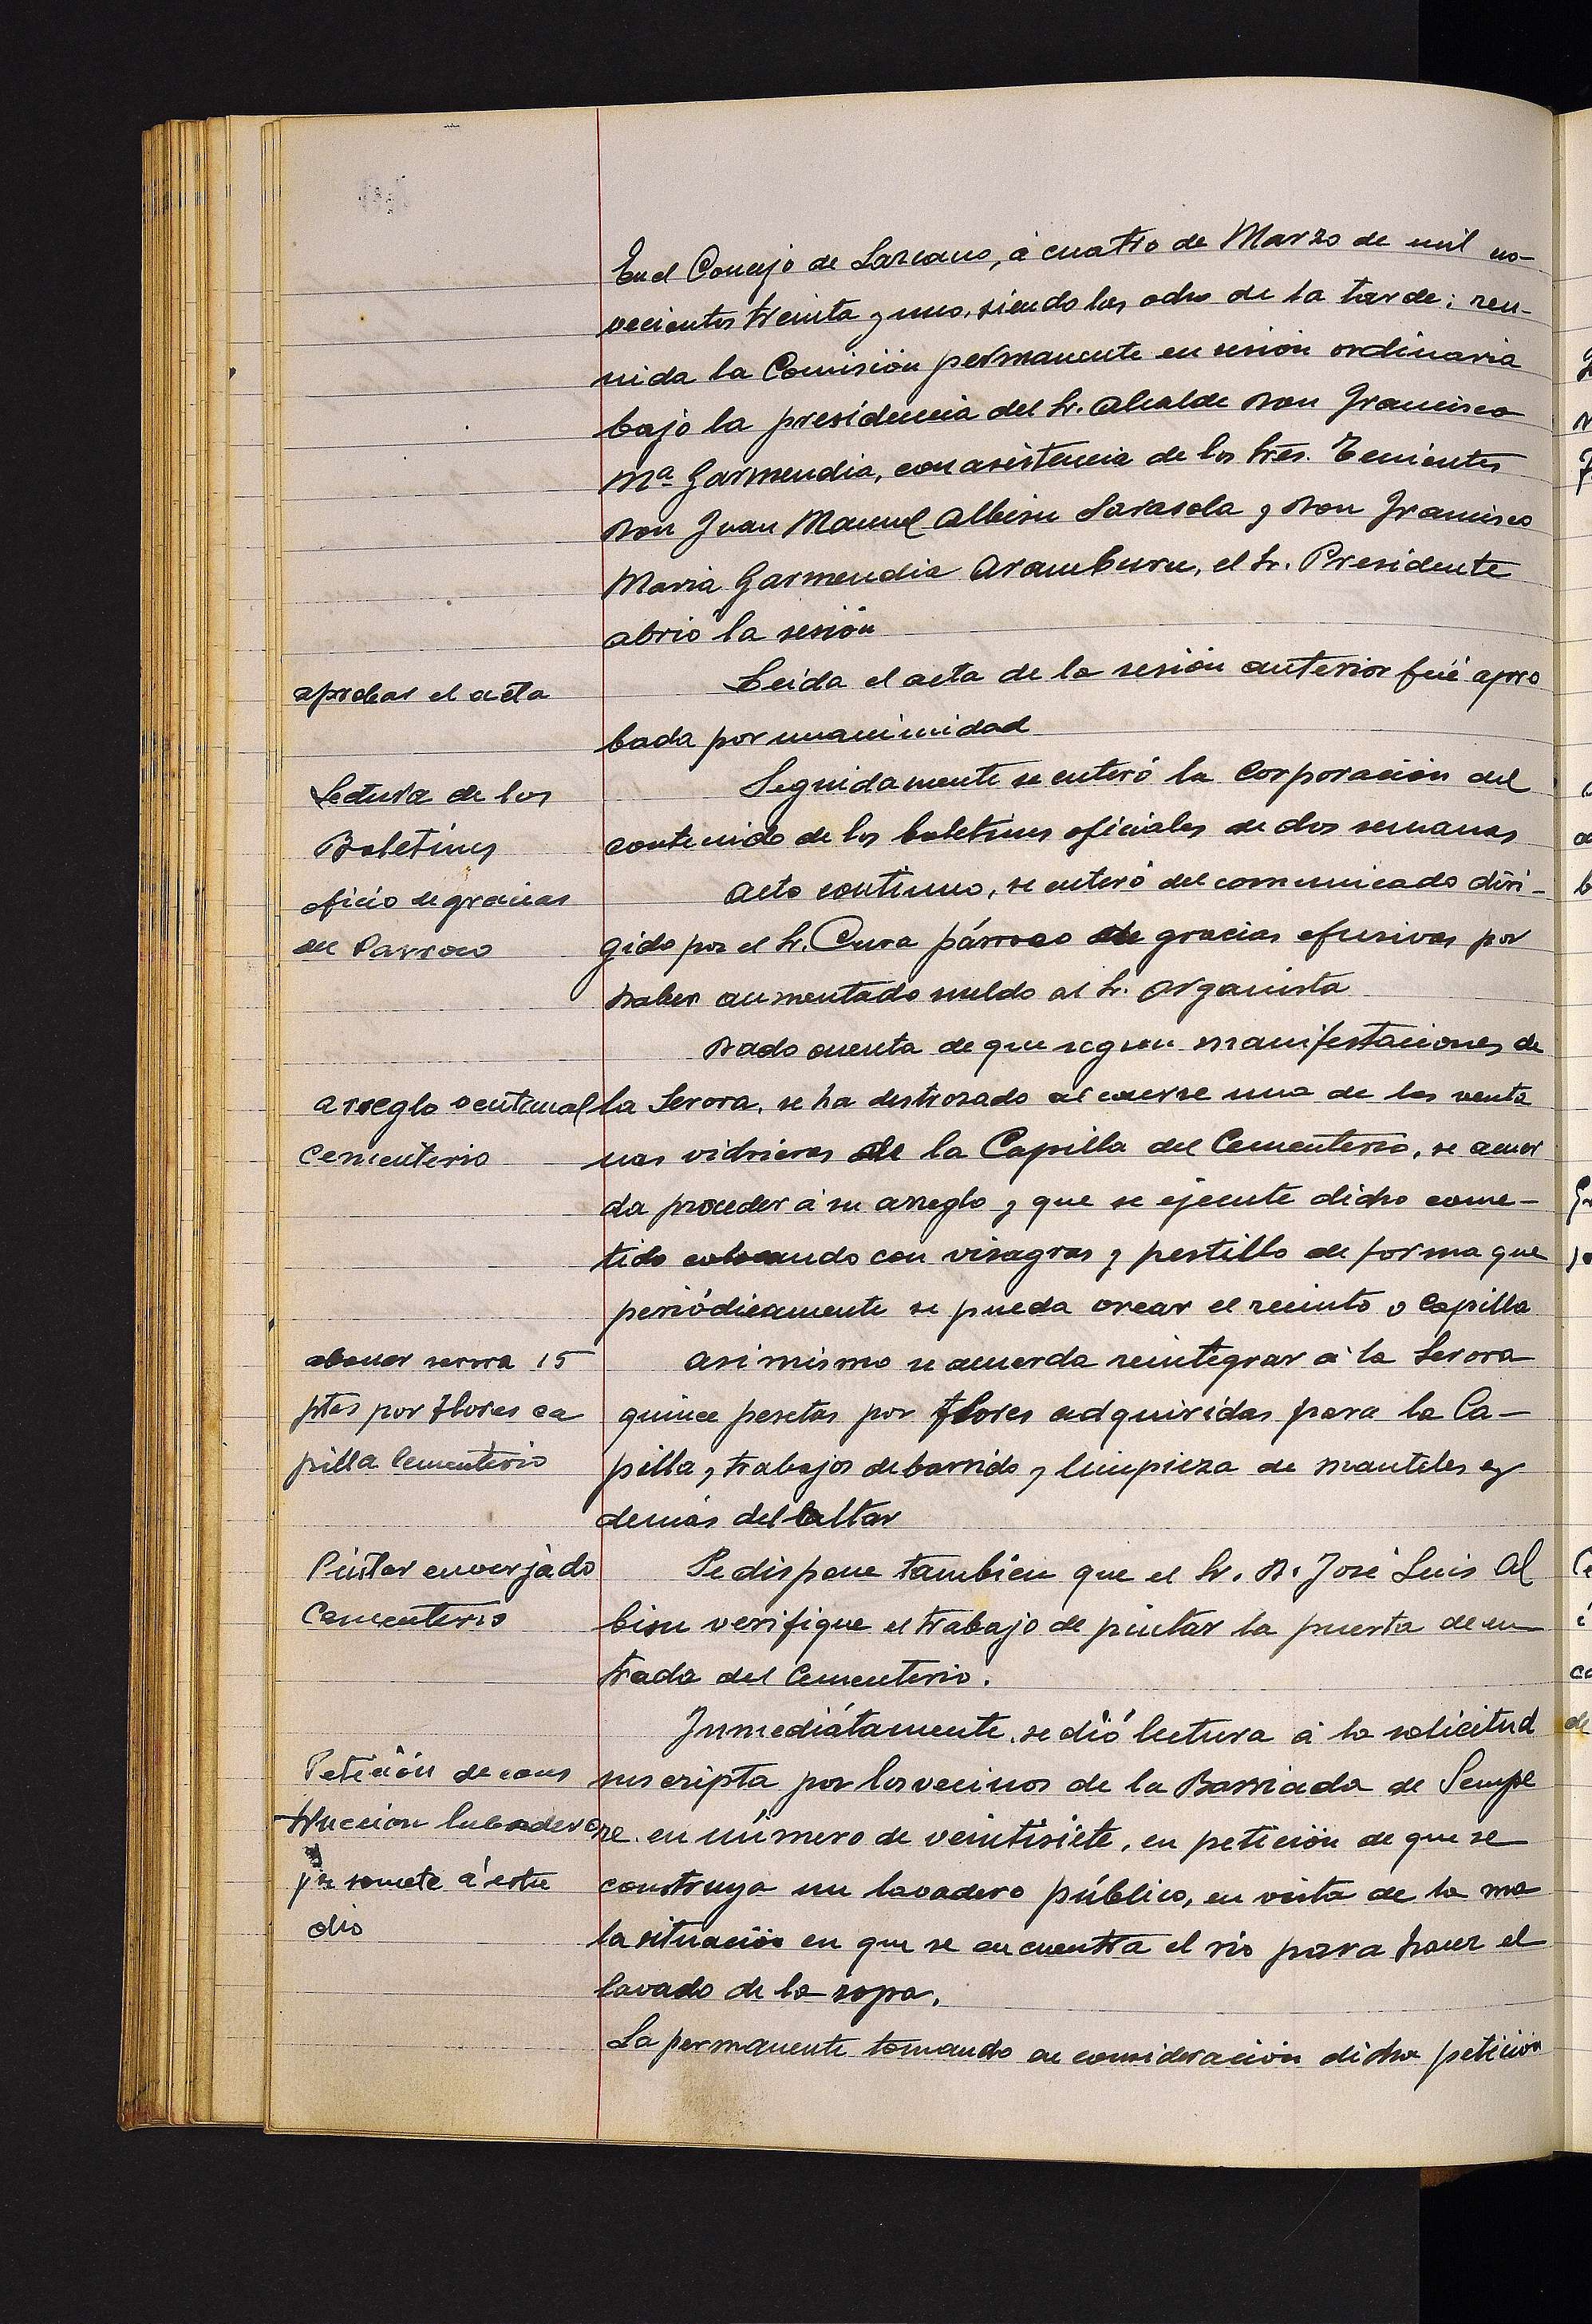 En el Concejo de Lazcano, á cuatro de Marzo de mil no-
vecientos treinta y uno, siendo las ocho de la tarde; reu-
nida la Comisión permanente en sesión ordinaria
bajo la presidencia del Sr. Alcalde Don Francisco
Mª Garmendia, con asistencia de los Sres. Tenientes
Don Juan Manuel Albisu Sarasola y Don Francisco
Maria Garmendia Aramburu, el Sr. Presidente
abrió la sesión
aprobar el acta
Leida el acta de la sesión anterior fué apro
bada por unanimidad
Lectura de los
Boletines
Seguidamente se enteró la Corporación del
contenido de los boletines oficiales de dos semanas
oficio de gracias
del Parroco
Acto continuo, se enteró del comunicado diri-
gido por el Sr. Cura párroco de gracias efusivas por
haber aumentado sueldo al Sr. Organista
Dado cuenta de que segun manifestaciones de
arreglo ventanal
Cementerio
la Serora, se ha destrozado al caerse una de las venta
nas vidrieras de la Capilla del Cementerio, se acuer
da proceder á su arreglo y que se ejecute dicho come-
tido colocando con visagras y pestillo de forma que
periódicamente se pueda orear el recinto o Capilla
abonar serora 15
ptas por flores ca
pilla Cementerio
Asimismo se acuerda reintegrar á la Serora
quince pesetas por flores adquiridas para la Ca-
pilla, trabajos de barrido y limpieza de manteles y
demás del altar
Pintar enverjado
Cementerio
Se dispone también que el Sr. D. José Luis Al
bisu verifique el trabajo de pintar la puerta de en
trada del Cementerio.
Inmediátamente, se dió lectura á la solicitud
Petición de cons
trucción labadero
y se somete á estu
dio
suscripta por los vecinos de la Barriada de Sempe
re en número de veintisiete, en petición de que se
construya un lavadero público, en vista de la ma
la situación en que se encuentra el rio para hacer el
lavado de la ropa.
La permanente tomando en consideración dicha petición